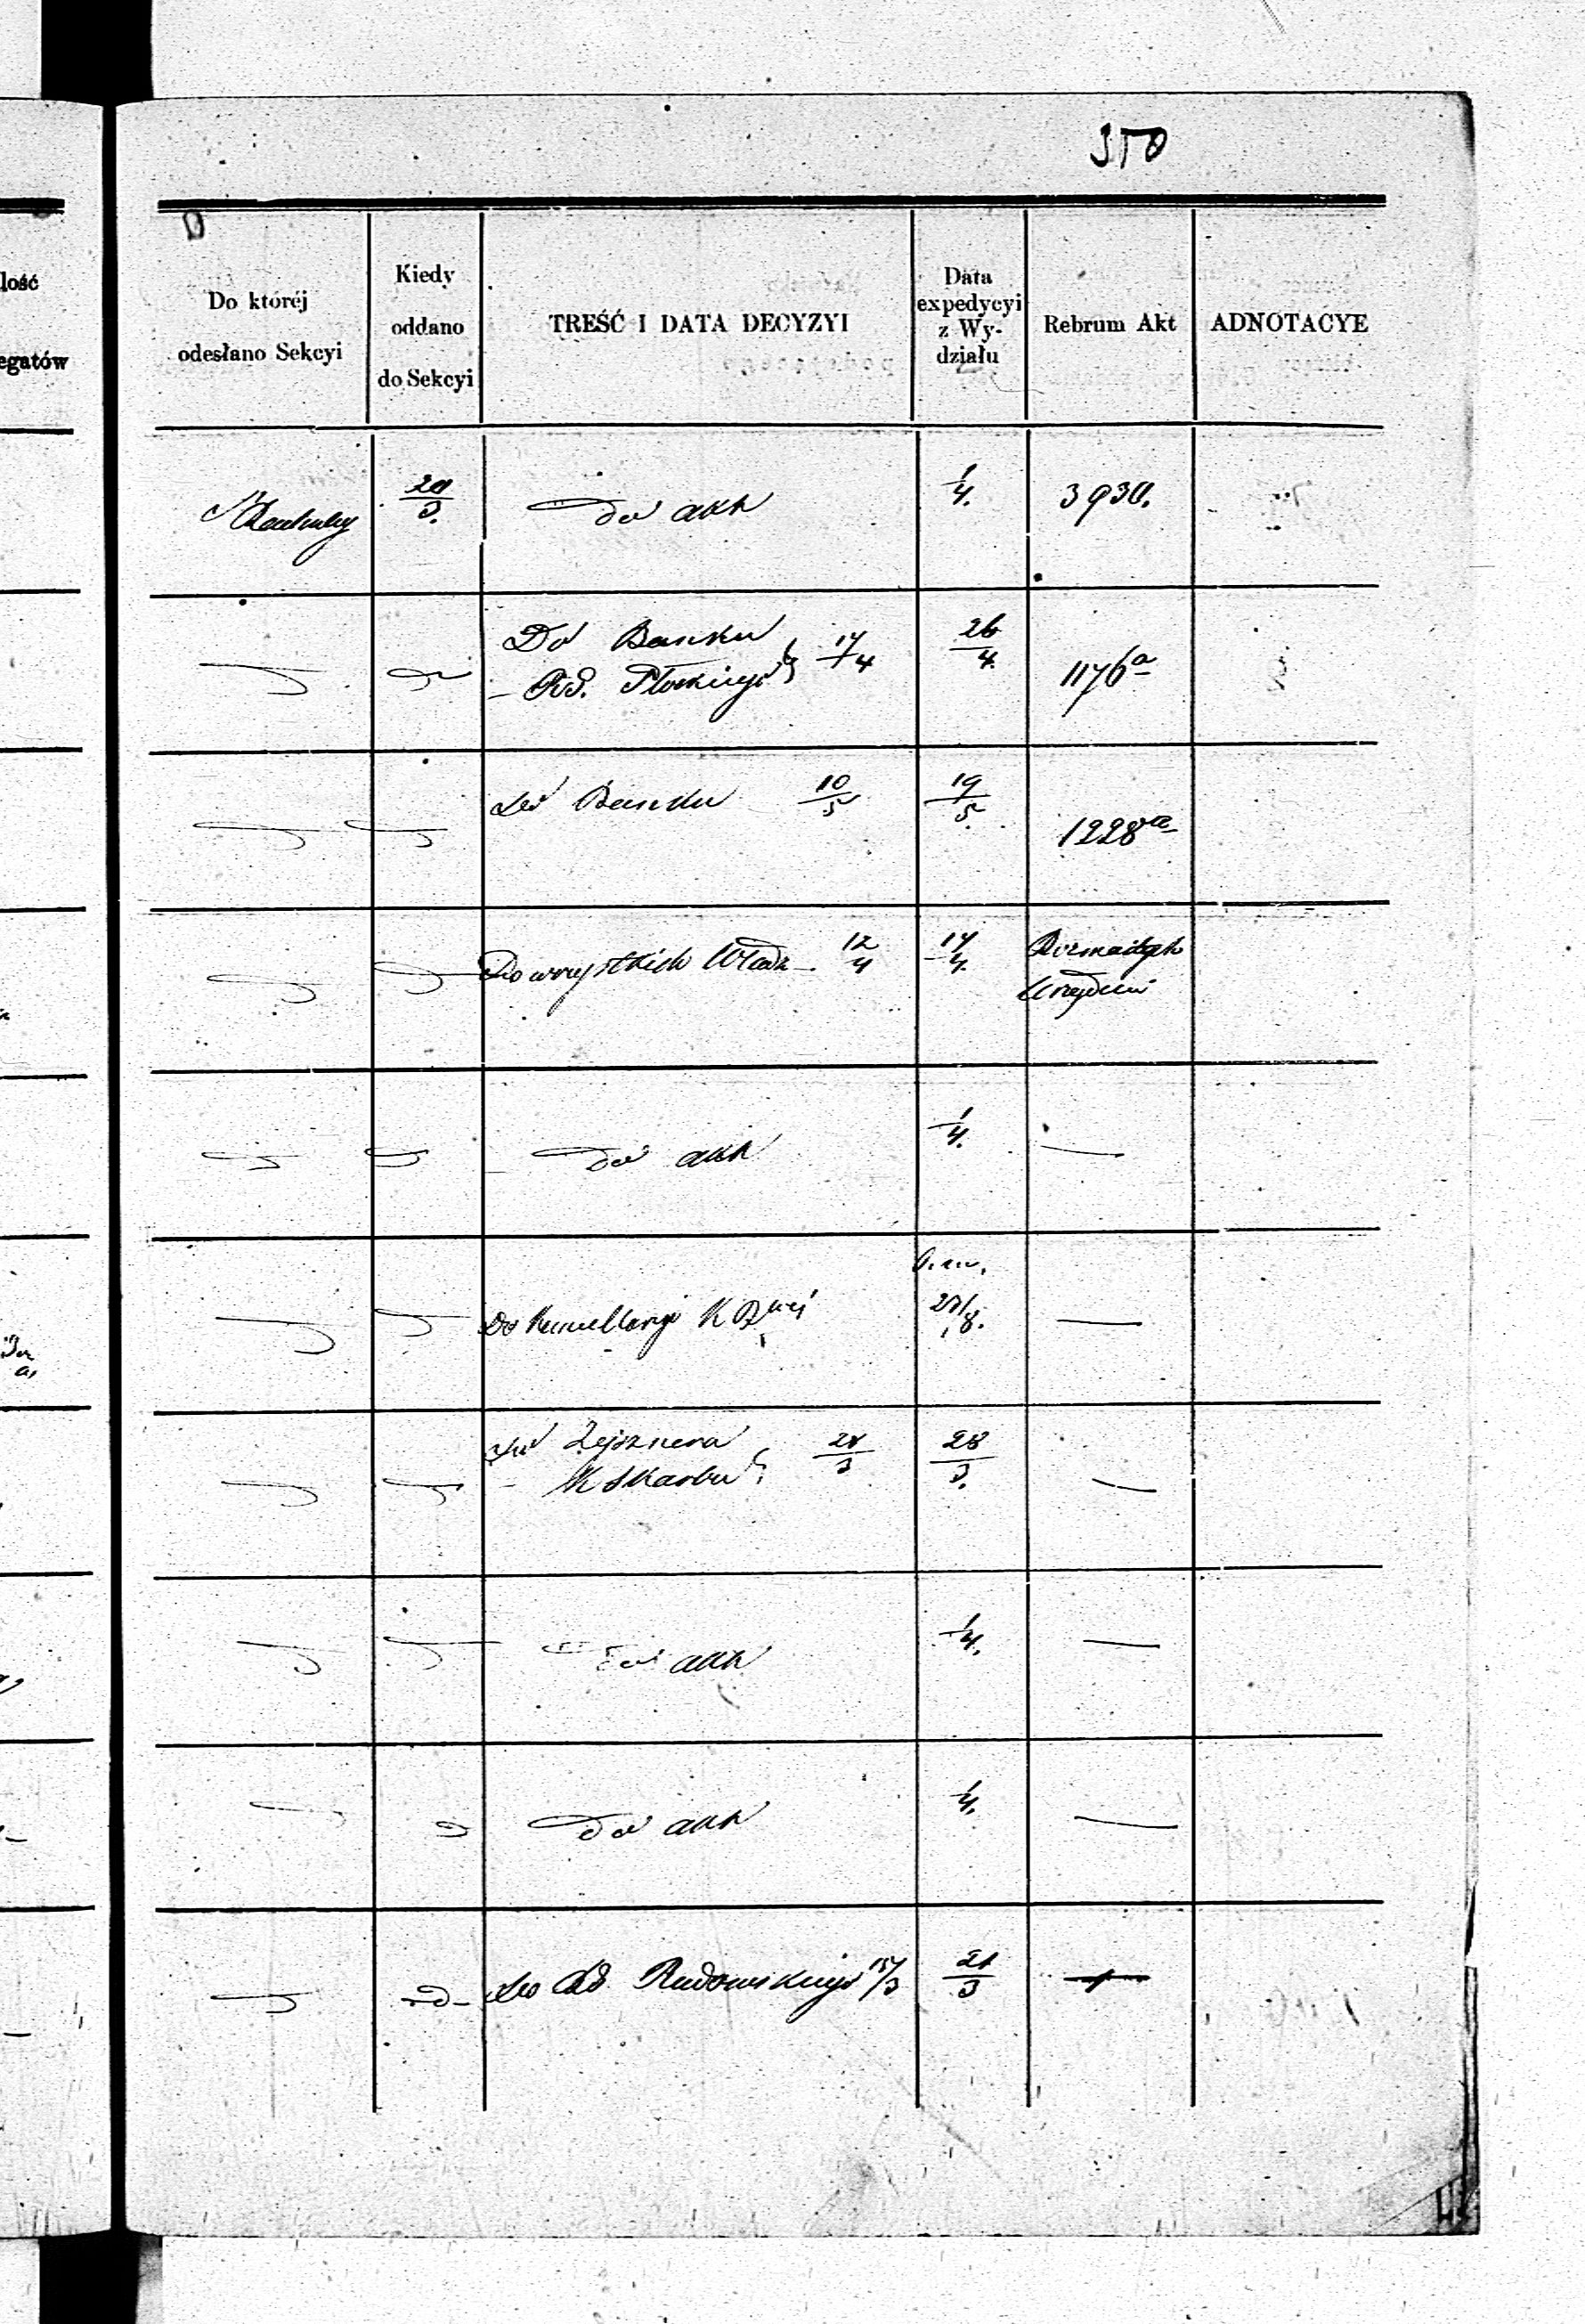 350
lość
egatów
Do któréj
odesłano Sekcyi
Kiedy
oddano
do Sekcyi
TREŚĆ I DATA DECYZYI
Data
expedycyi
z Wy-
działu
Rebrum Akt
ADNOTACYE
20/3. do akt 1/4. 3930.
Do Banku 17/4 26/4.
Płockiego 1176a
do Banku 10/5 19/5.
1228a
Do wszystkich Władz 12/4 17/4. Rozmaitych
Urzędów
do akt 1/4. —
Do Kancellaryi K 27/8. —
do Zejsznera 28/3 28/3. —
K Skarbu
do akt 1/4. —
do akt 1/4. —
do Radowskiego 15/3 21/3